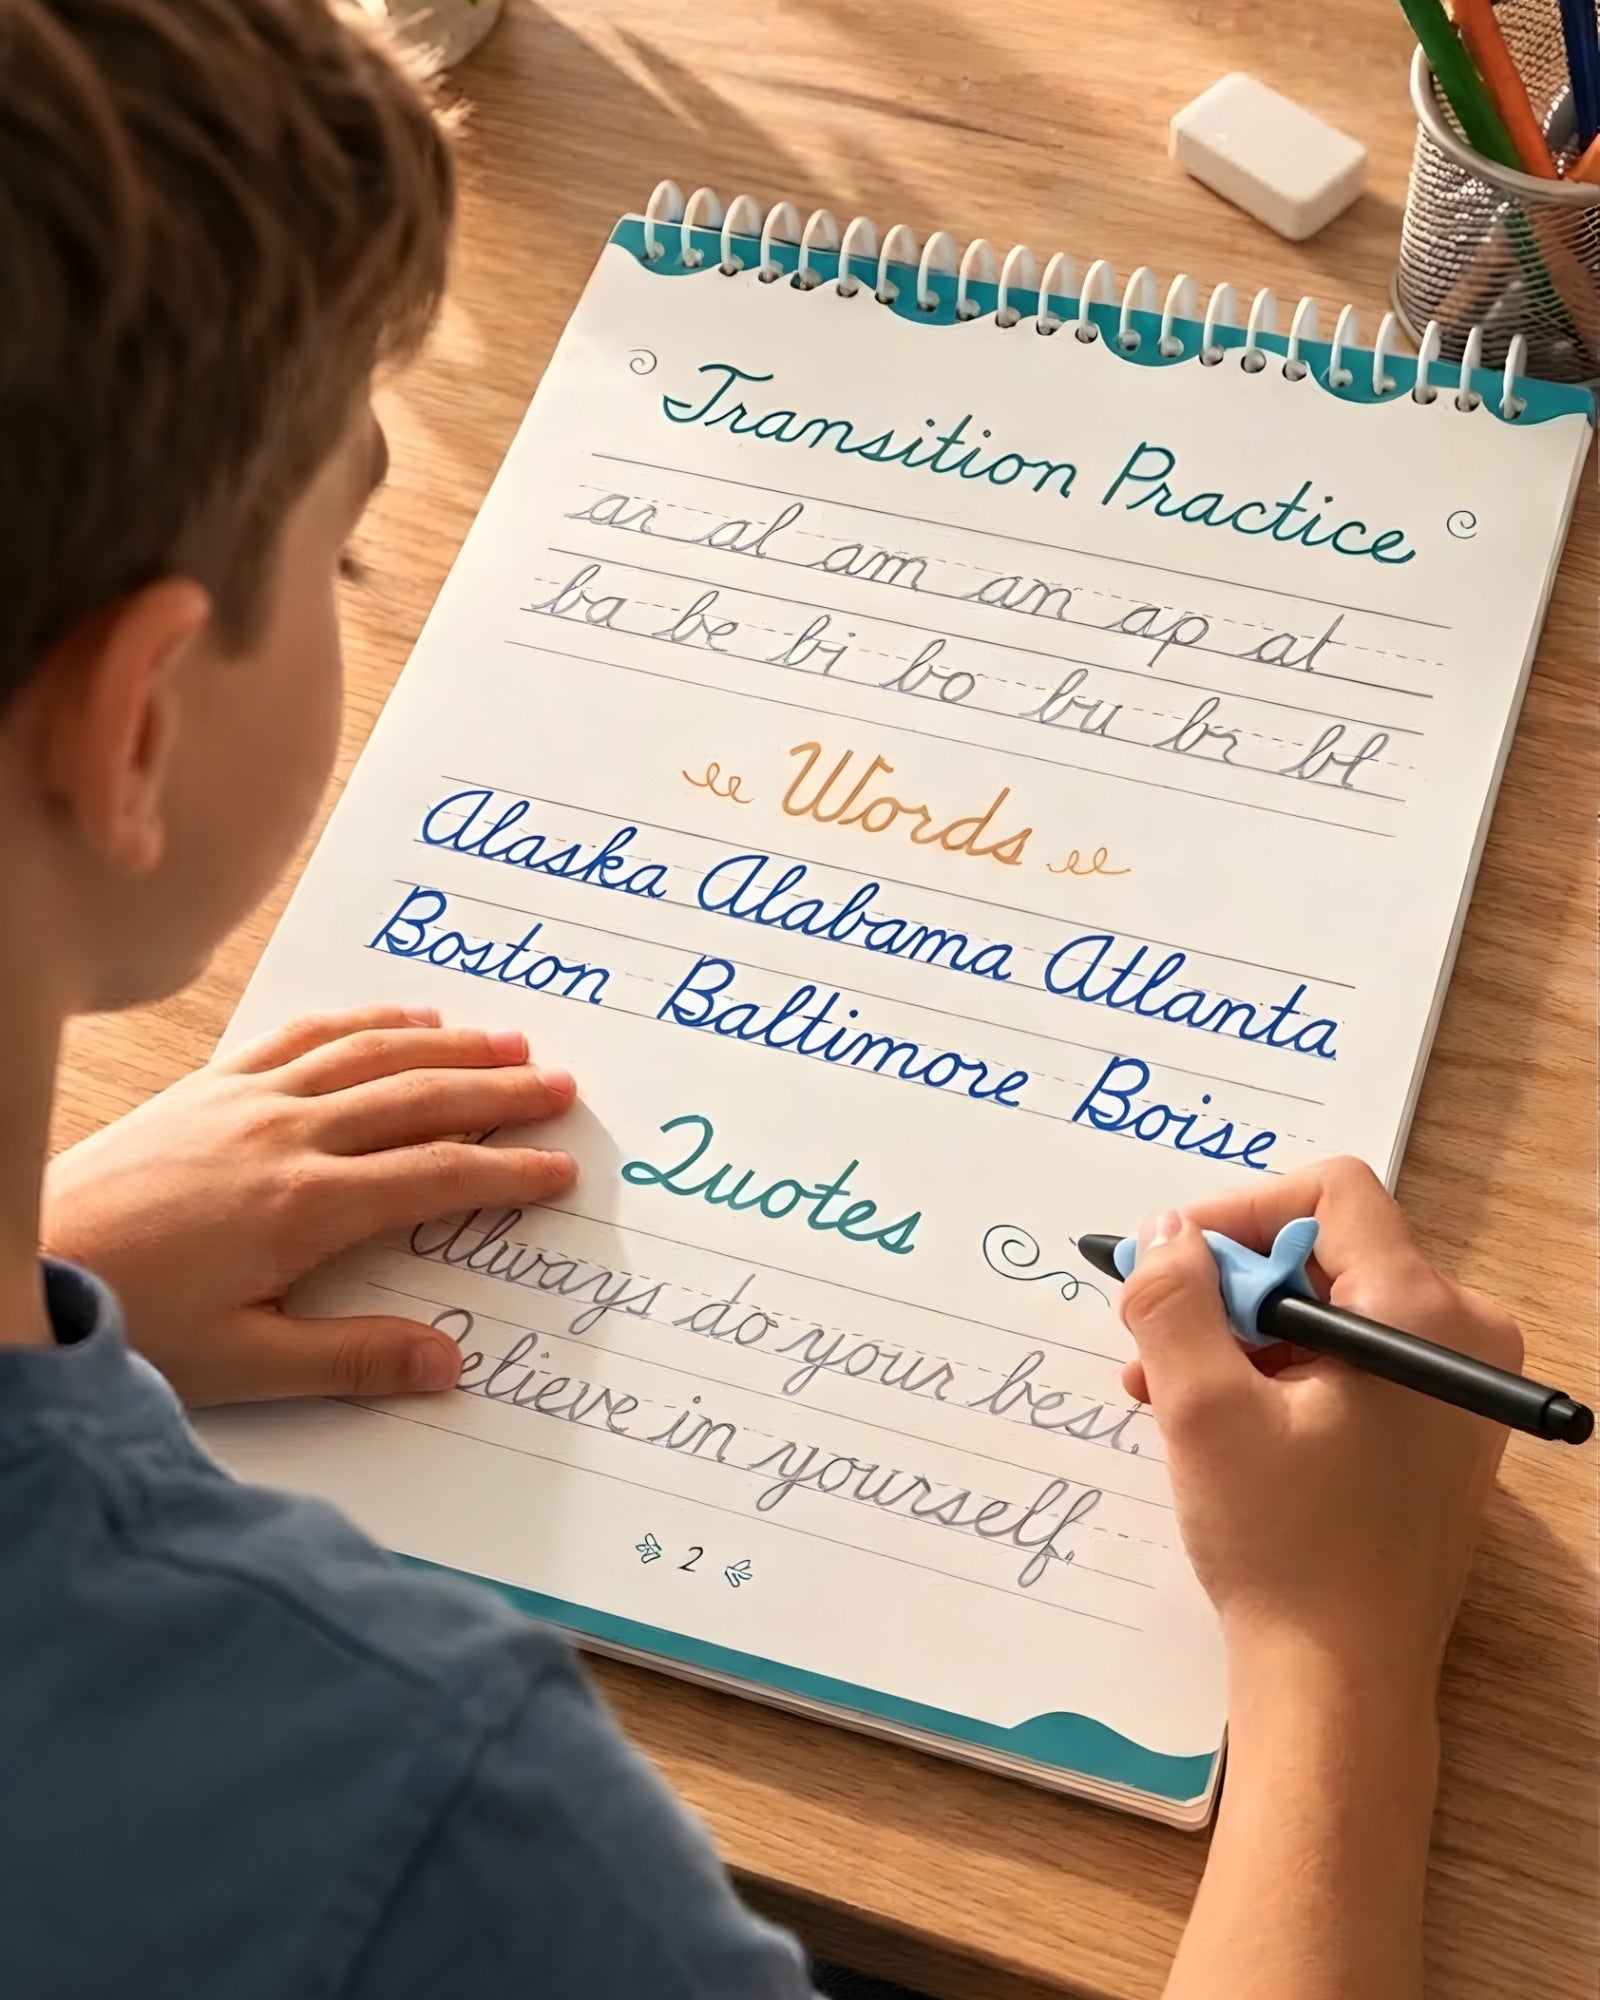 Transition Practice
ar al am an ap at
ba be bi bo bu br bl
Words
Alaska Alabama Atlanta
Boston Baltimore Boise
Quotes
Always do your best.
Believe in yourself.
2